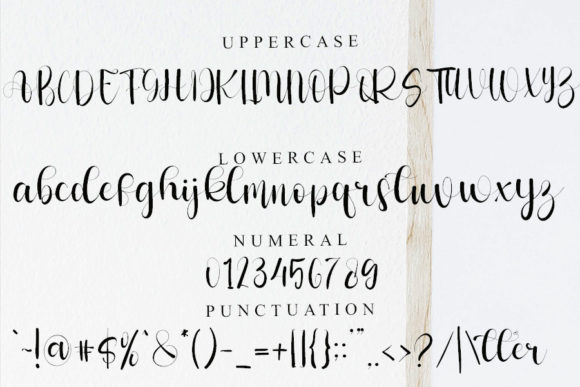 UPPERCASE
ABCDEFGHIJKLMNOPQRSTUVWXYZ
LOWERCASE
abcdefghijklmnopqrstuvwxyz
NUMERAL
0123456789
PUNCTUATION
`~!@#$%^&*()-_=+[]{};:'",.<>?/|\